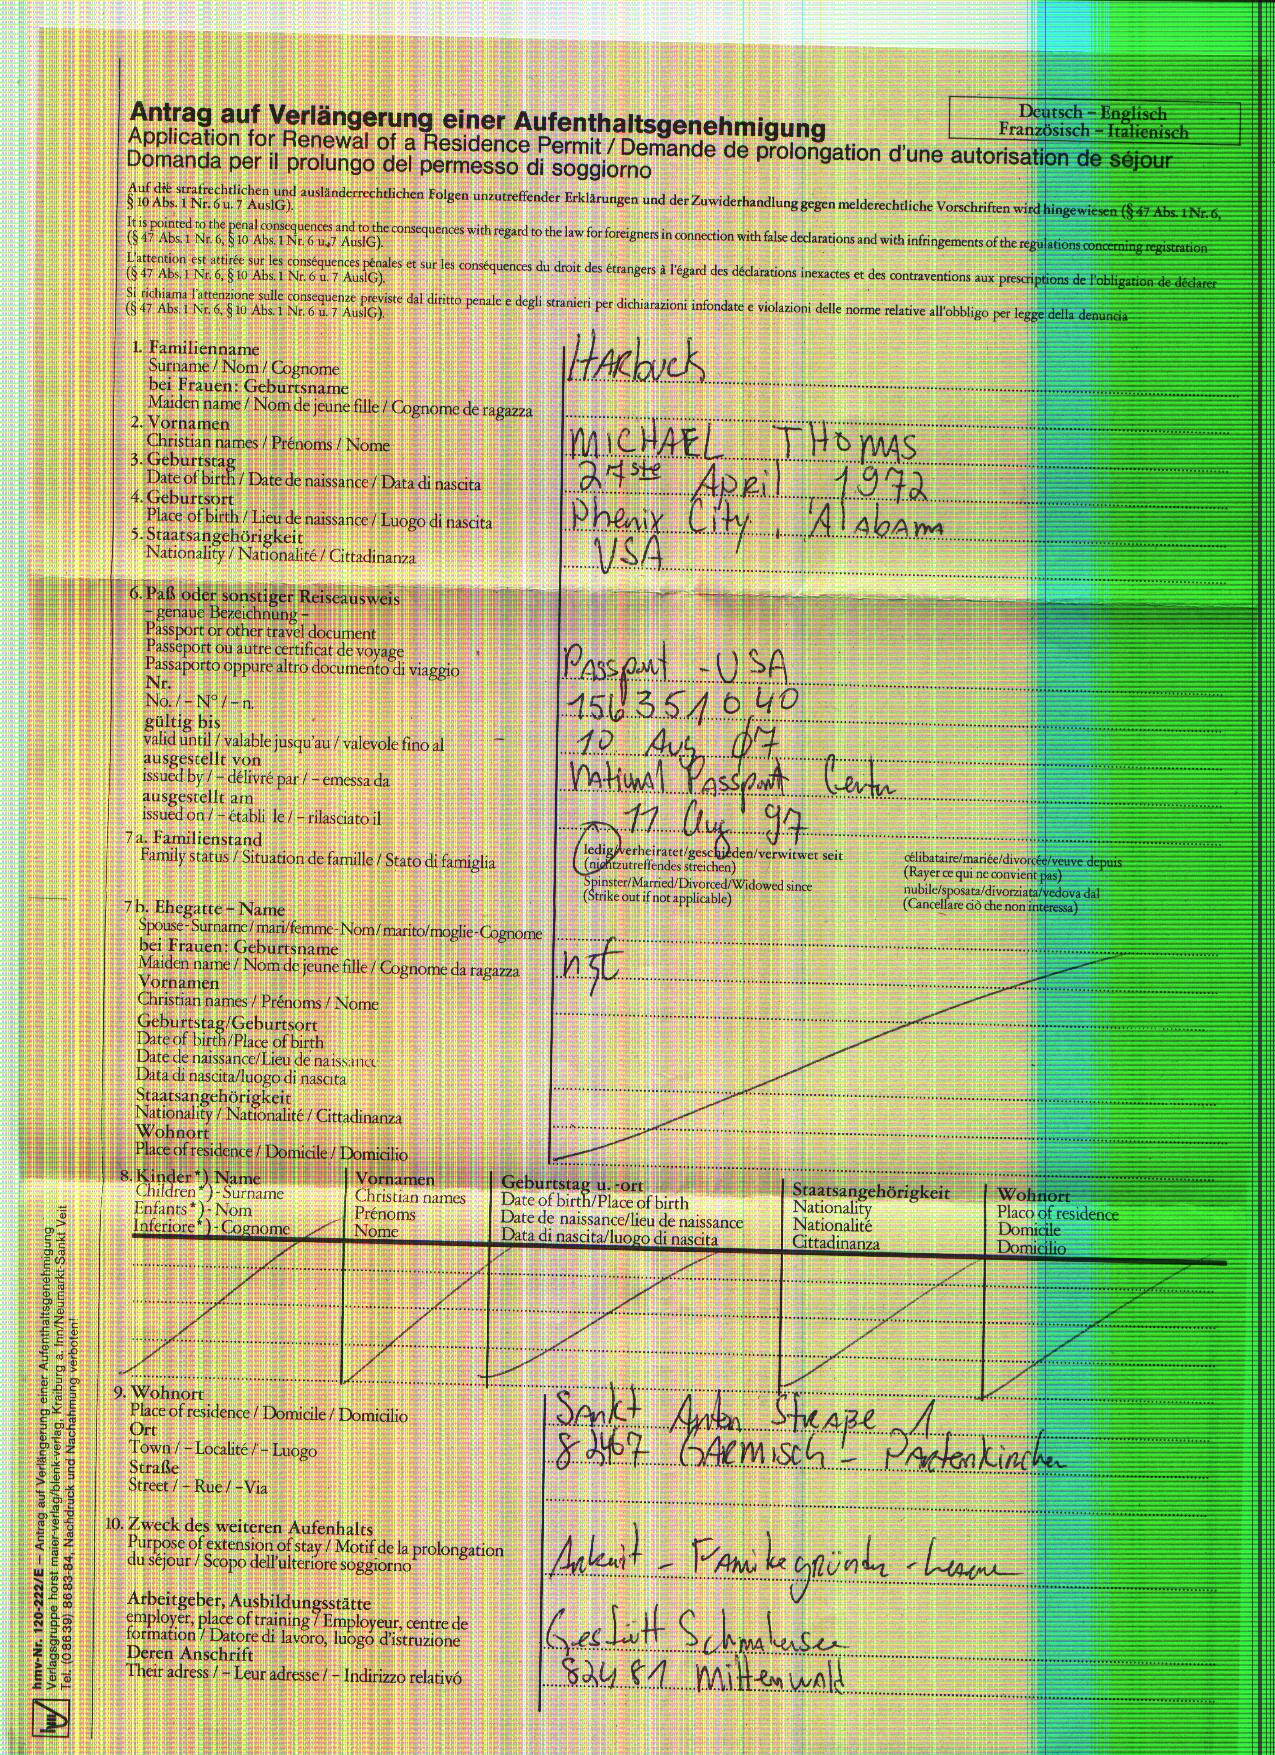 Antrag auf Verlängerung einer Aufenthaltsgenehmigung
Deutsch – Englisch
Französisch – Italienisch
Application for Renewal of a Residence Permit / Demande de prolongation d'une autorisation de séjour
Domanda per il prolungo del permesso di soggiorno
Auf die strafrechtlichen und ausländerrechtlichen Folgen unzutreffender Erklärungen und der Zuwiderhandlung gegen melderechtliche Vorschriften wird hingewiesen (§ 47 Abs. 1 Nr. 6,
§ 10 Abs. 1 Nr. 6 u. 7 AuslG).
It is pointed to the penal consequences and to the consequences with regard to the law for foreigners in connection with false declarations and with infringements of the regulations concerning registration
(§ 47 Abs. 1 Nr. 6, § 10 Abs. 1 Nr. 6 u. 7 AuslG).
L'attention est attirée sur les conséquences pénales et sur les conséquences du droit des étrangers à l'égard des déclarations inexactes et des contraventions aux prescriptions de l'obligation de déclarer
(§ 47 Abs. 1 Nr. 6, § 10 Abs. 1 Nr. 6 u. 7 AuslG).
Si richiama l'attenzione sulle consequenze previste dal diritto penale e degli stranieri per dichiarazioni infondate e violazioni delle norme relative all'obbligo per legge della denuncia
(§ 47 Abs. 1 Nr. 6, § 10 Abs. 1 Nr. 6 u. 7 AuslG).
1. Familienname
Surname / Nom / Cognome
HARbuck
bei Frauen: Geburtsname
Maiden name / Nom de jeune fille / Cognome de ragazza
2. Vornamen
Christian names / Prénoms / Nome
MICHAEL THOMAS
3. Geburtstag
Date of birth / Date de naissance / Data di nascita
27ste April 1972
4. Geburtsort
Place of birth / Lieu de naissance / Luogo di nascita
Phenix City, Alabama
5. Staatsangehörigkeit
Nationality / Nationalité / Cittadinanza
USA
6. Paß oder sonstiger Reiseausweis
– genaue Bezeichnung –
Passport or other travel document
Passeport ou autre certificat de voyage
Passaporto oppure altro documento di viaggio
Passport - USA
Nr.
No. / – N° / – n.
156351040
gültig bis
valid until / valable jusqu'au / valevole fino al
10 Aug 07
ausgestellt von
issued by / – délivré par / – emessa da
National Passport Center
ausgestellt am
issued on / – établi le / – rilasciato il
11 Aug 97
7a. Familienstand
Family status / Situation de famille / Stato di famiglia
ledig/verheiratet/geschieden/verwitwet seit
(nichtzutreffendes streichen)
Spinster/Married/Divorced/Widowed since
(Strike out if not applicable)
célibataire/mariée/divorcée/veuve depuis
(Rayer ce qui ne convient pas)
nubile/sposata/divorziata/vedova dal
(Cancellare ciò che non interessa)
7b. Ehegatte – Name
Spouse-Surname/mari/femme-Nom/marito/moglie-Cognome
bei Frauen: Geburtsname
Maiden name / Nom de jeune fille / Cognome da ragazza
Vornamen
Christian names / Prénoms / Nome
Geburtstag/Geburtsort
Date of birth/Place of birth
Date de naissance/Lieu de naissance
Data di nascita/luogo di nascita
Staatsangehörigkeit
Nationality / Nationalité / Cittadinanza
Wohnort
Place of residence / Domicile / Domicilio
8. Kinder*) Name
Children*)-Surname
Enfants*)-Nom
Inferiore*)-Cognome
Vornamen
Christian names
Prénoms
Nome
Geburtstag u. -ort
Date of birth/Place of birth
Date de naissance/lieu de naissance
Data di nascita/luogo di nascita
Staatsangehörigkeit
Nationality
Nationalité
Cittadinanza
Wohnort
Placo of residence
Domicile
Domicilio
9. Wohnort
Place of residence / Domicile / Domicilio
Sankt Anton Straße 1
Ort
Town / – Localité / – Luogo
82467 GARMISCH - Partenkirchen
Straße
Street / – Rue / –Via
10. Zweck des weiteren Aufenhalts
Purpose of extension of stay / Motif de la prolongation
du séjour / Scopo dell'ulteriore soggiorno
Arbeitgeber, Ausbildungsstätte
employer, place of training / Employeur, centre de
formation / Datore di lavoro, luogo d'istruzione
Gestütt Schmalensee
Deren Anschrift
Their adress / – Leur adresse / – Indirizzo relativó
82481 Mittenwald
hmv-Nr. 120-222/E – Antrag auf Verlängerung einer Aufenthaltsgenehmigung
Verlagsgruppe horst maier-verlag/blenk-verlag, Kraiburg a. Inn/Neumarkt-Sankt Veit
Tel. (0 86 39) 86 83-84, Nachdruck und Nachahmung verboten!